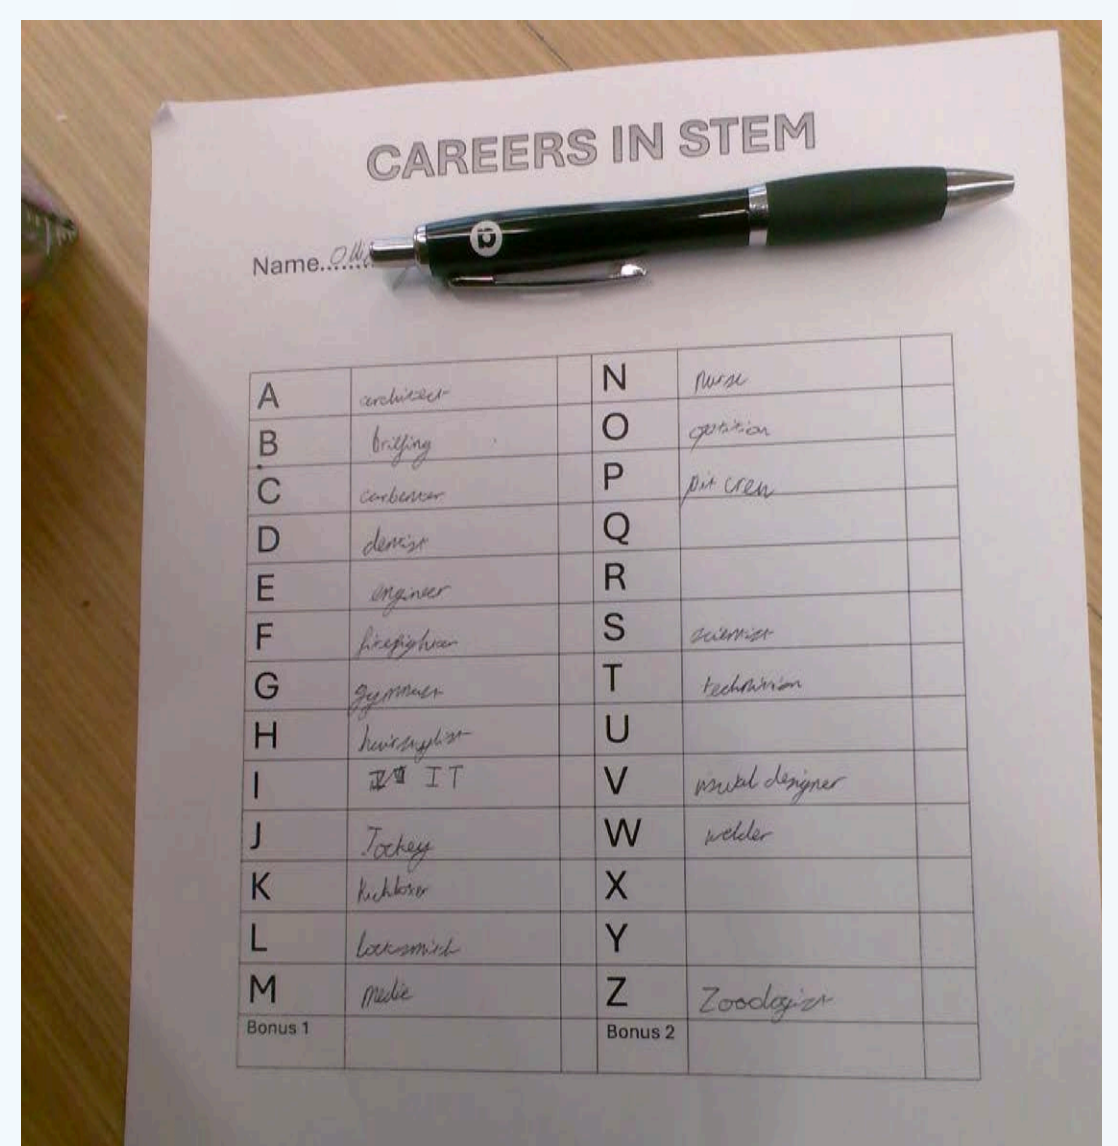 CAREERS IN STEM
Name......
A architect N nurse
B briefing O optition
C carbenter P pit crew
D dentist Q
E engineer R
F firefighter S scientist
G gymnast T techninion
H hairstylist U
I IT V visual designer
J Jockey W welder
K kickboxer X
L locksmith Y
M medic Z Zoologist
Bonus 1 Bonus 2